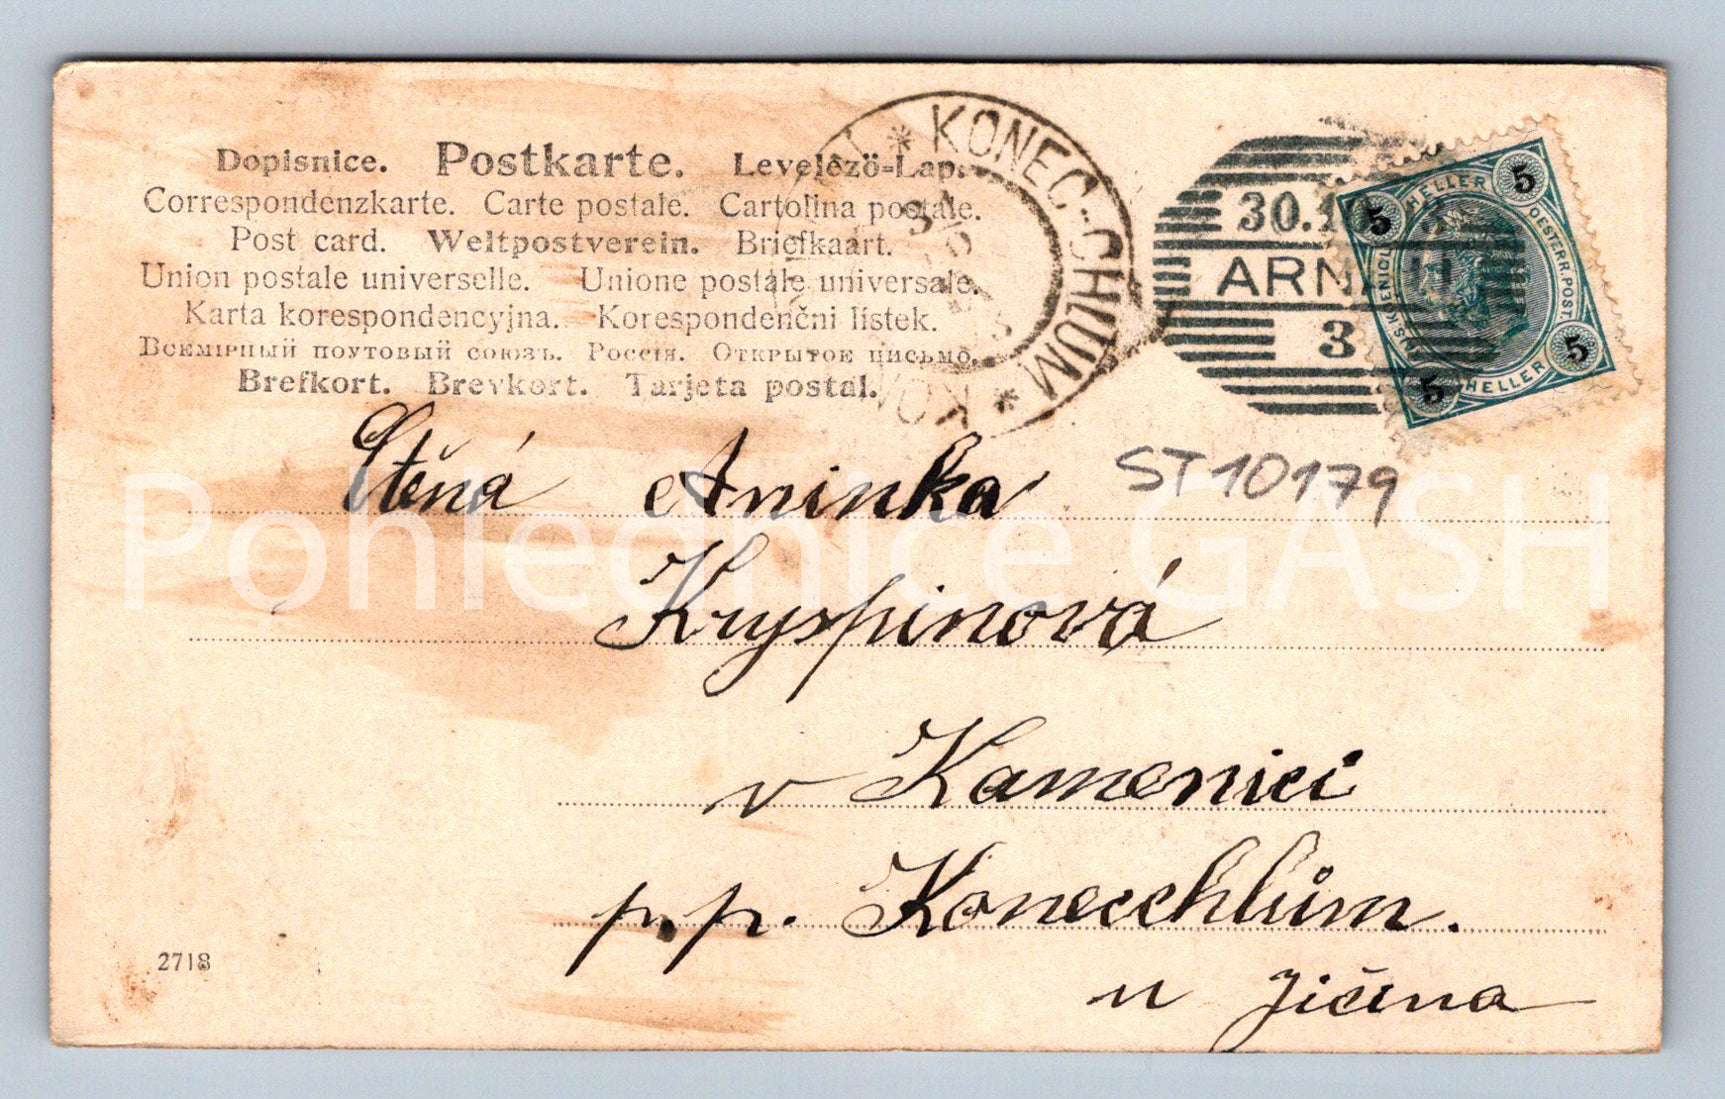 Dopisnice. Postkarte. Levelező-Lap.
Correspondenzkarte. Carte postale. Cartolina postale.
Post card. Weltpostverein. Briefkaart.
Union postale universelle. Unione postale universale.
Karta korespondencyjna. Korespondenční lístek.
Всемірный поутовый союзъ. Россія. Открытое письмо.
Brefkort. Brevkort. Tarjeta postal.
* KONEC-CHLUM *
30.10
ARN
3
5 HELLER 5
OESTERR. POST.
5 HELLER 5
ST10179
Ctěná Aninka
Kryspinová
v Kamenici
p. p. Konecchlům.
u Jičína
2718
Pohlednice GASH